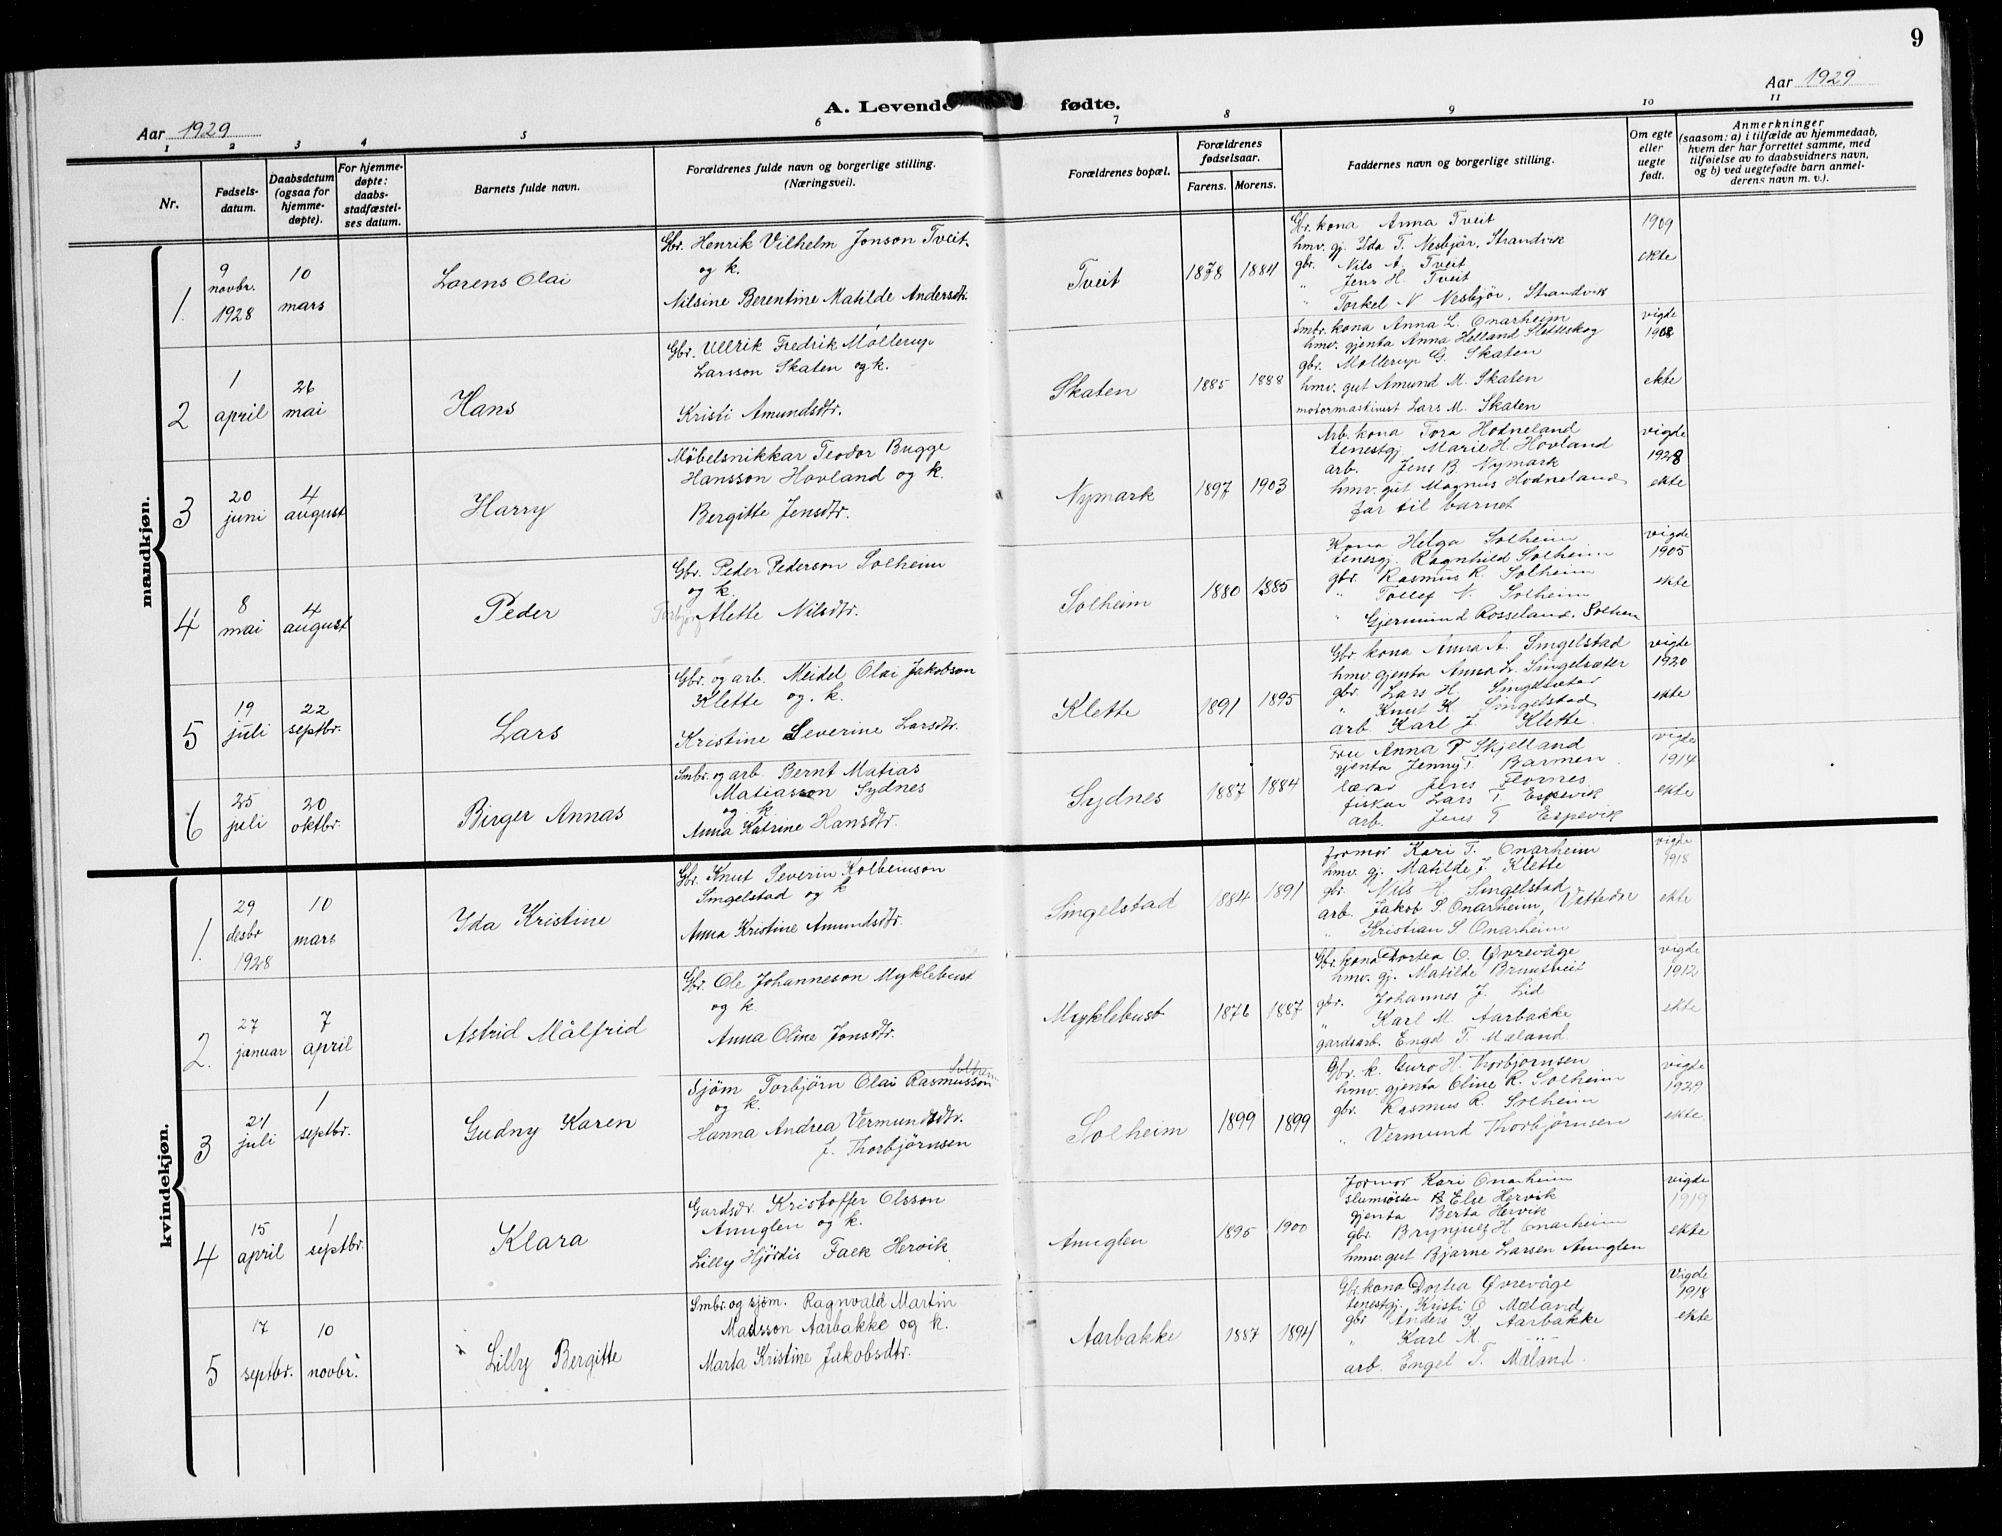 9
Aar 1929
Aar 1929
A. Levende fødte.
1 2 3 4 5 6 7 8 9 10 11
Nr.
Fødsels-
datum.
Daabsdatum
(ogsaa for
hjemme-
døpte).
For hjemme-
døpte:
daabs-
stadfæstel-
ses datum.
Barnets fulde navn.
Forældrenes fulde navn og borgerlige stilling.
(Næringsvei).
Forældrenes bopæl.
Forældrenes
fødselsaar.
Farens. Morens.
Faddernes navn og borgerlige stilling.
Om egte
eller
uegte
født.
Anmerkninger
(saasom: a) i tilfælde av hjemmedaab,
hvem der har forrettet samme, med
tilføielse av to daabsvidners navn,
og b) ved uegtefødte barn anmel-
derens navn m. v.).
mandkjøn.
1.
9
novbr.
1928
10
mars
Lorens Olai
Gbr. Henrik Vilhelm Jonson Tveit
og k.
Nilsine Berentine Matilde Andersdtr.
Tveit
1878 1884
Gbr. kona Anna Tveit
hmv. gj. Ida T. Nesbjør, Strandvik
gbr. Nils A. Tveit
" Jens H. Tveit
" Torkel N. Nesbjør, Strandvik
1909
ekte
2
1
april
26
mai
Hans
Gbr. Ullrik Fredrik Møllerup
Larsson Skaten og k.
Kristi Amundsdtr.
Skaten
1885 1888
Smbr. kona Anna L. Onarheim
hmv. gjenta Anna Helland Sletteskog
gbr. Møllerup G. Skaten
hmv. gut Amund M. Skaten
motormaskinist Lars M. Skaten
vigde
1908
ekte
3
20
juni
4
august
Harry
Møbelsnikkar Teodor Bugge
Hansson Hovland og k.
Bergitte Jensdtr.
Nymark
1897 1903
Arb. kona Tora Hodneland
tenestgj. Marie H. Hovland
arb. Jens B. Nymark
hmv. gut Magnus Hodneland
far til barnet
vigde
1928
ekte
4
8
mai
4
august
Peder
Gbr. Peder Pederson Solheim
og k.
Alette Nilsdtr.
Solheim
1880 1885
Kona Helga Solheim
tenesgj. Ragnhild Solheim
gbr. Rasmus R. Solheim
" Tollef N. Solheim
" Gjermund Rosseland, Solheim
vigde
1905
ekte
5
19
juli
22
septbr.
Lars
Gbr. og arb. Meidel Olai Jakobson
Klette og. k.
Kristine Severine Larsdtr.
Klette
1891 1895
Gbr kona Anna A. Singelstad
hmv. gjenta Anna L. Singelsæter
gbr. Lars H. Singelsæter
" Knut K. Singelstad
arb. Karl J. Klette.
vigde
1920
ekte
6
25
juli
20
oktbr.
Birger Annas
Smbr. og arb. Bernt Matias
Matiasson Sydnes
og k.
Anna Katrine Hansdtr.
Sydnes
1887 1884
Fru Anna T Skjelland
gjenta Jenny T. Barmen
lærar Jens Flornes
fiskar Lars T. Espevik
arb. Jens T Espevik
vigde
1914
ekte
kvindekjøn.
1.
29
desbr
1928
10
mars
Ida Kristine
Gbr. Knut Severin Kolbeinson
Singelstad og k
Anna Kristine Amundsdtr.
Singelstad
1884 1891
formor Kari T. Onarheim
hmv. gj. Matilde J. Klette
gbr. Nils H. Singelstad
arb. Jakob S. Onarheim,
" Kristian S Onarheim
vigde
1918
ekte
2.
27
januar
7
april
Astrid Målfrid
Gbr. Ole Johanneson Myklebust
og k.
Anna Oline Jonsdtr.
Myklebust
1876 1887
Gbr. kona Dortea O. Øvrevåge
hmv. gj. Matilde Bruntveit
gbr. Johannes J. Lid
" Karl M. Aarbakke
gardsarb. Engel T. Mæland.
vigde
1912
ekte
3
21
juli
1
septbr.
Gudny Karen
Sjøm Torbjørn Olai Rasmusson Solheim
og k.
Hanna Andrea Vermundsdtr.
f. Thorbjørnsen
Solheim
1899 1899
Gbr. k. Guro H. Thorbjornsen
hmv. gjenta Oline R. Solheim
gbr. Rasmus R. Solheim
" Vermund Thorbjørnsen
vigde
1929
ekte.
4
15
april
1
septbr.
Klara
Gardsdr. Kristoffer Olsson
Anuglen og k.
Lilly Hjørdis Falk Hervik
Anuglen
1895 1900
formor Kari Onarheim
B Else Hervik
gjenta Berta Hervik
gbr. Brynjulf H. Onarheim
hmv. gut Bjarne Larsen Anuglen
vigde
1919
ekte
5
17
septbr.
10
novbr.
Lilly Bergitte
Smbr. og sjøm. Ragnvald Martin
Madsson Aarbakke og k.
Marta Kristine Jakobsdtr.
Aarbakke
1887 1894
Gbr. kona Dortea Øvrevåge
tenestgj. Kristi O Mæland
gbr Anders J. Aarbakke
" Karl M. "
arb. Engel T. Mæland.
Vigde
1918
ekte